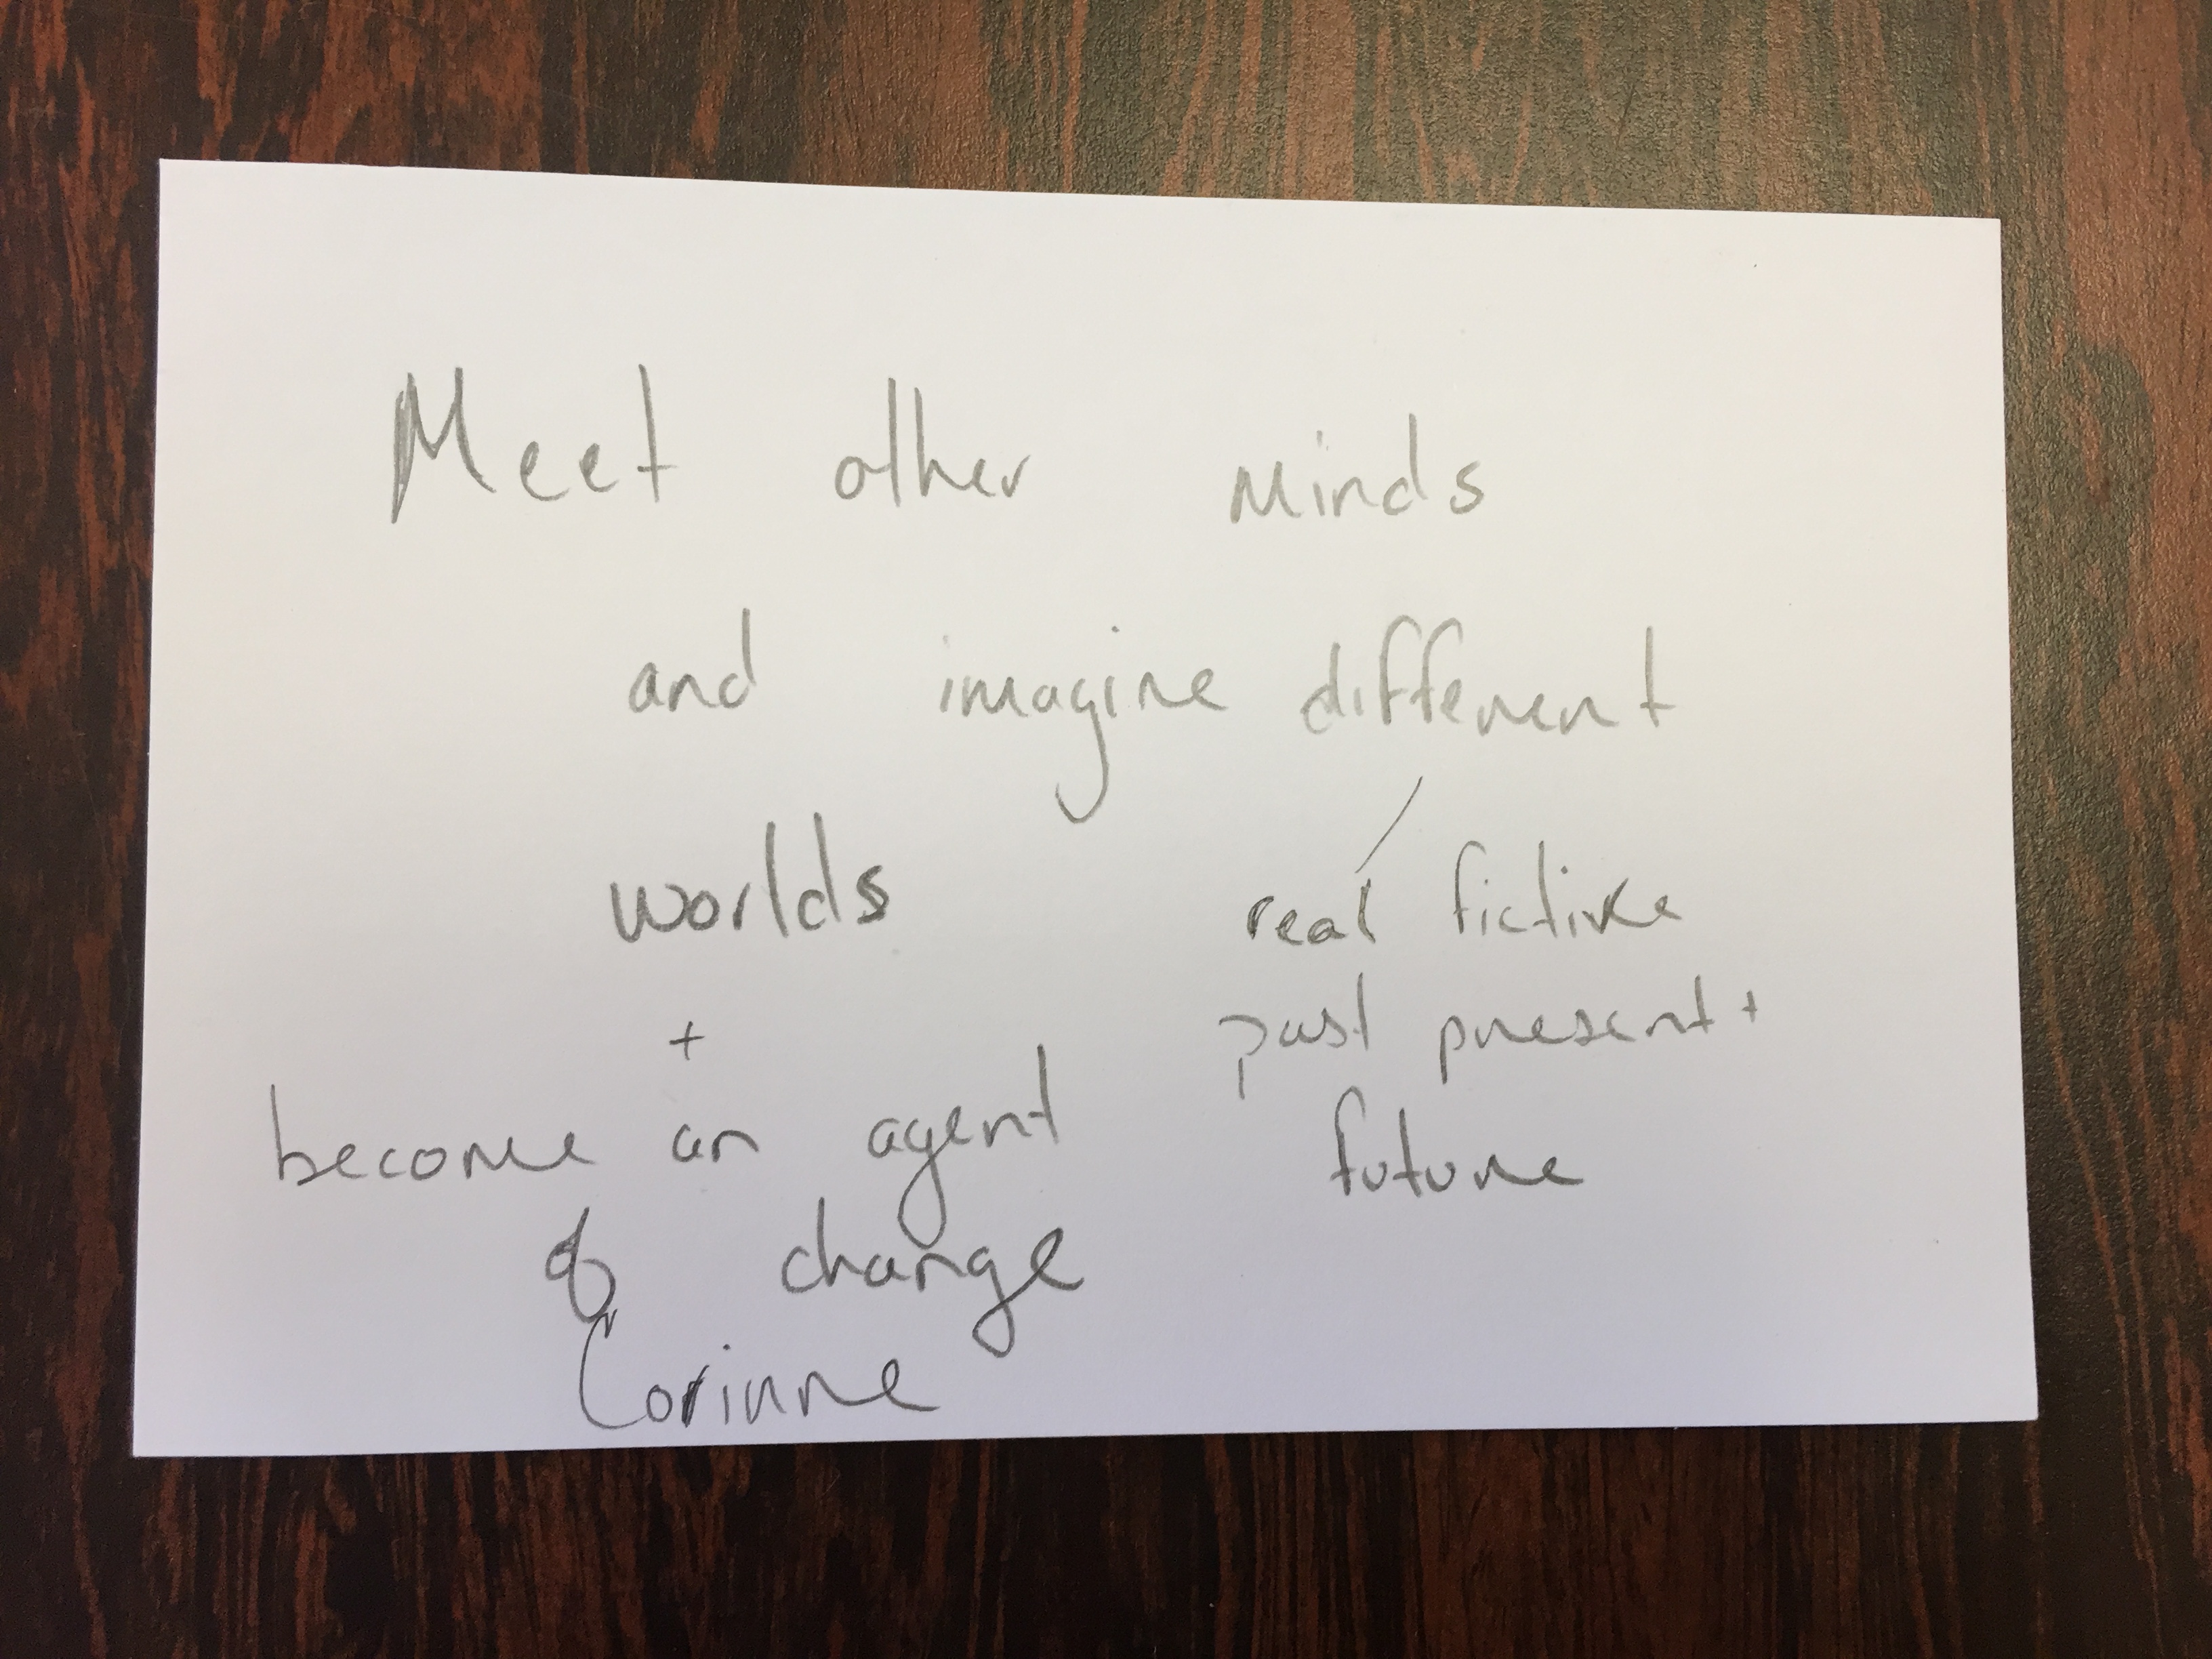 Meet other minds
and imagine different
worlds
+
become an agent
of change
Corinne
real fictive
past present +
future